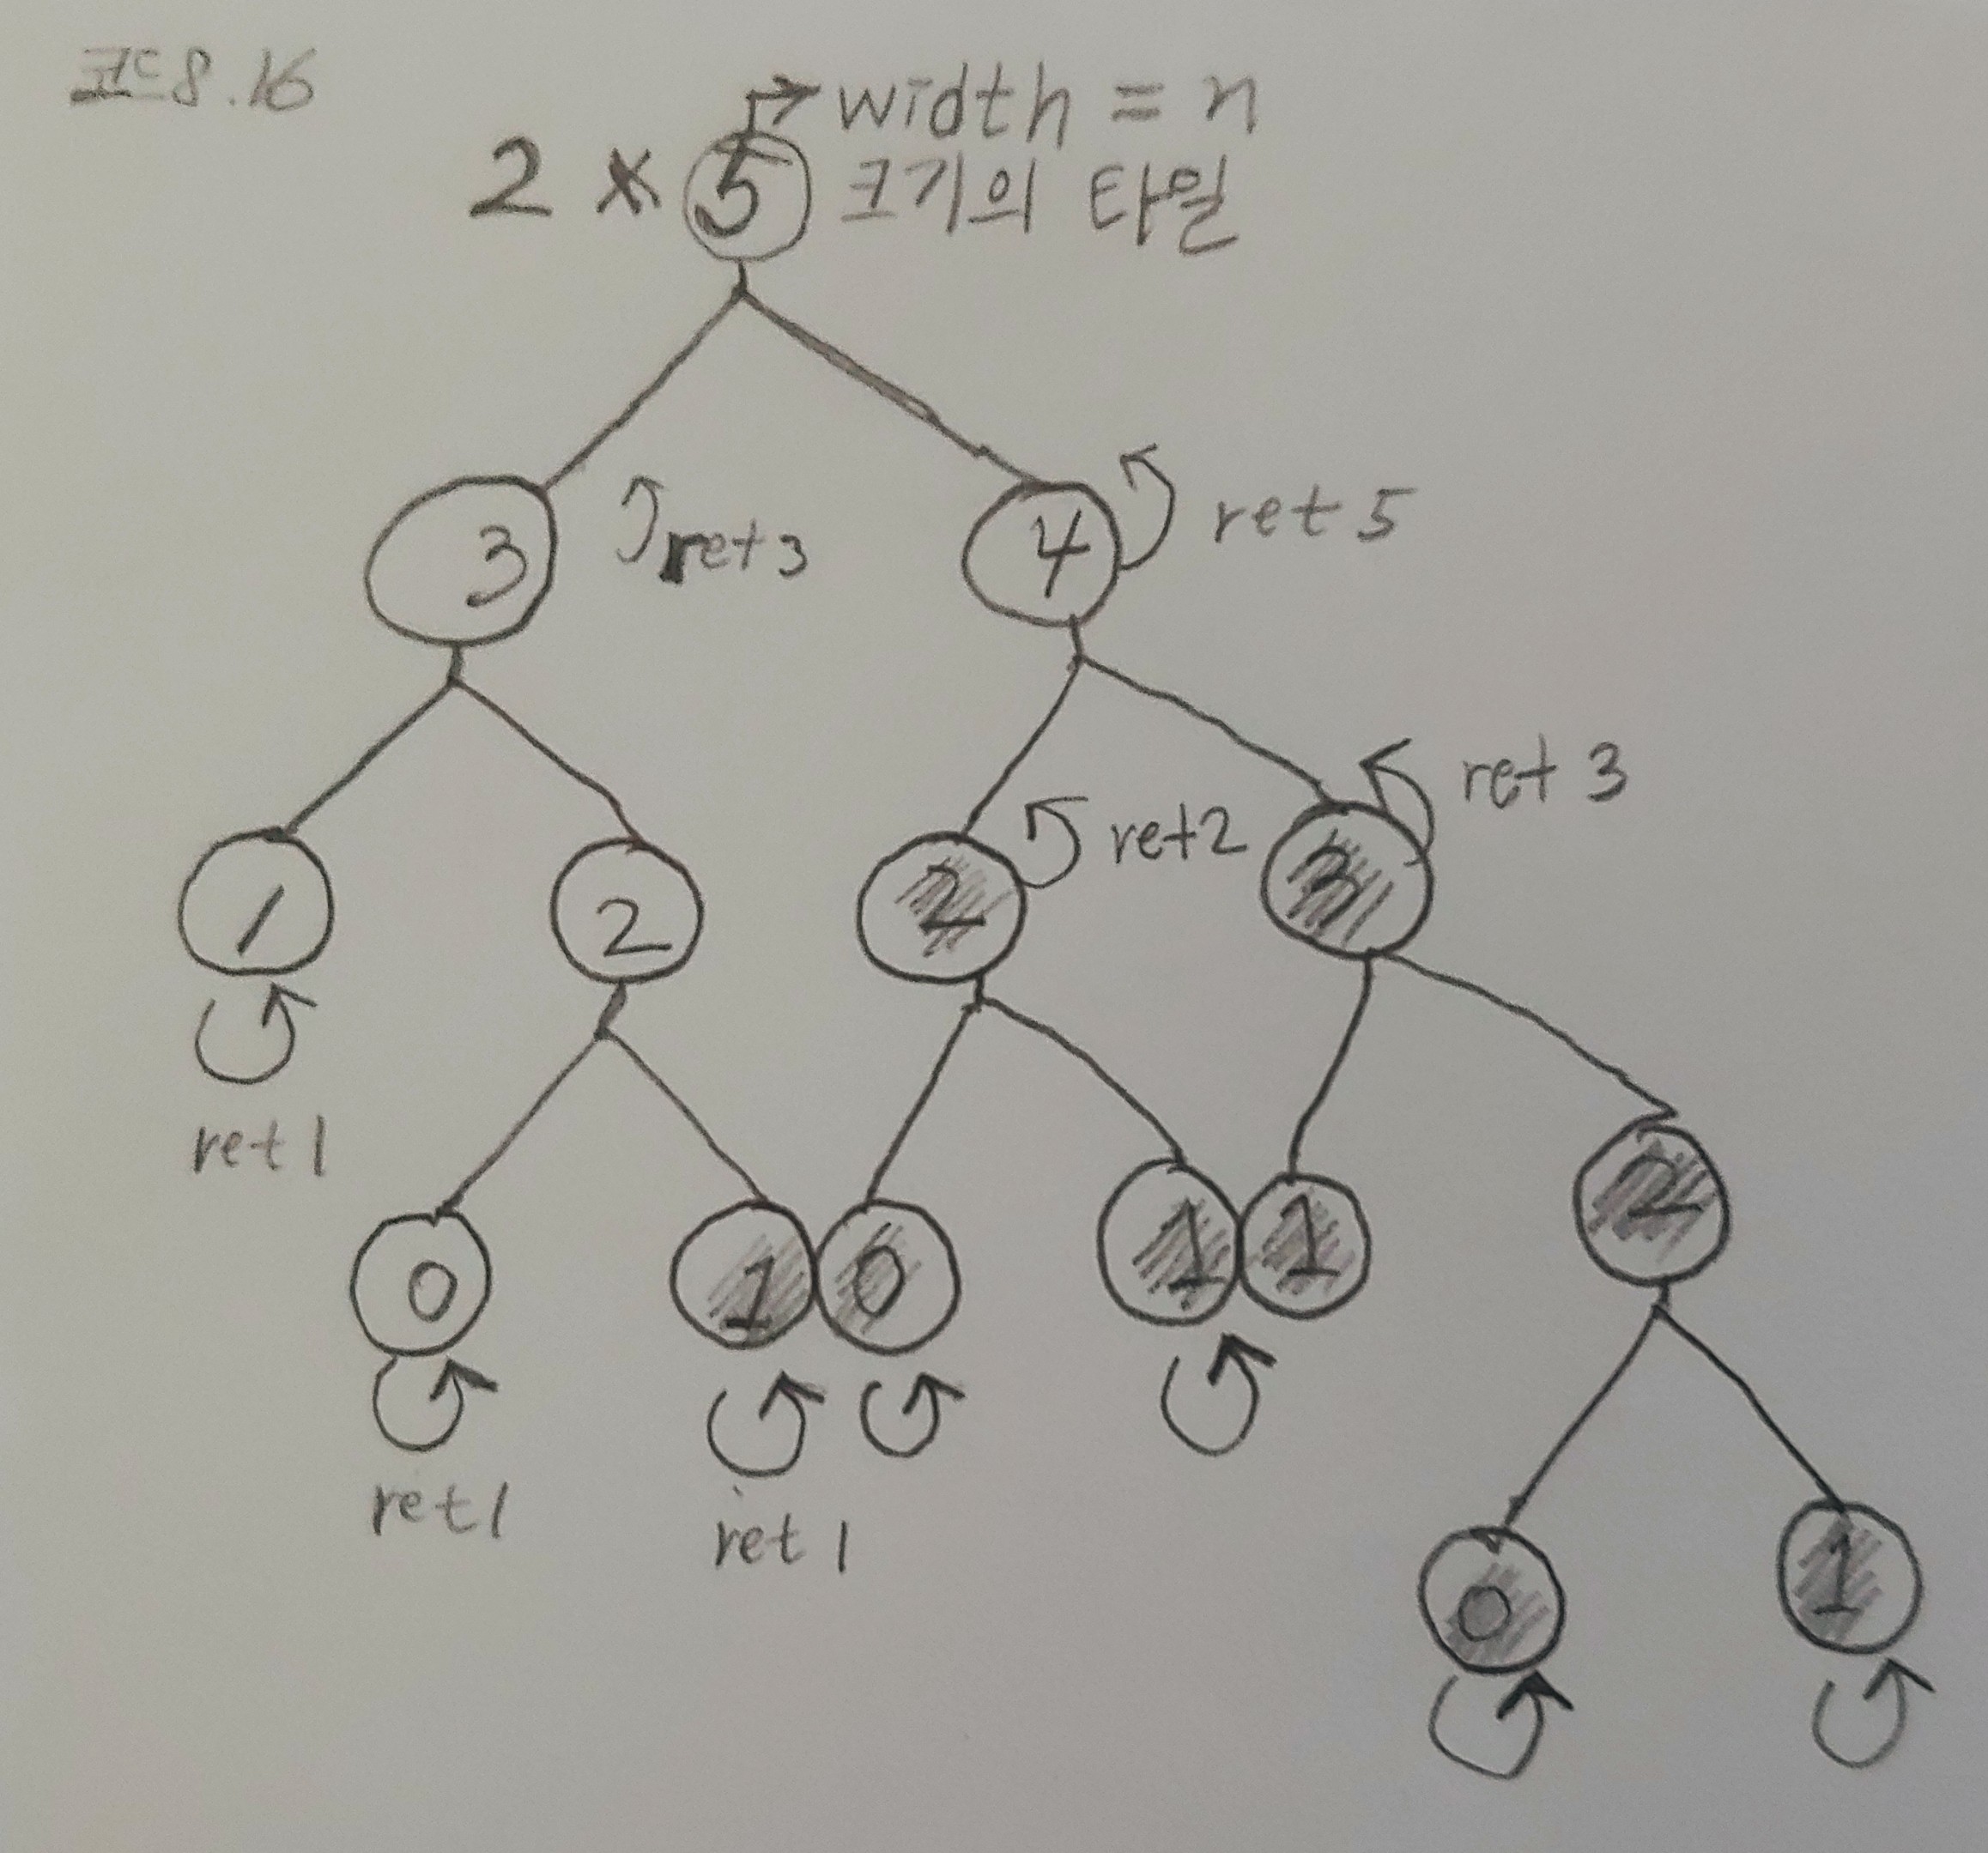 코드8.16
width = n
2 × 5 크기의 타일
3 ret 3 4 ret 5
ret 3
1 2 2 ret2 3
ret 1 2
0 1 0 1 1
ret 1 ret 1
0 1